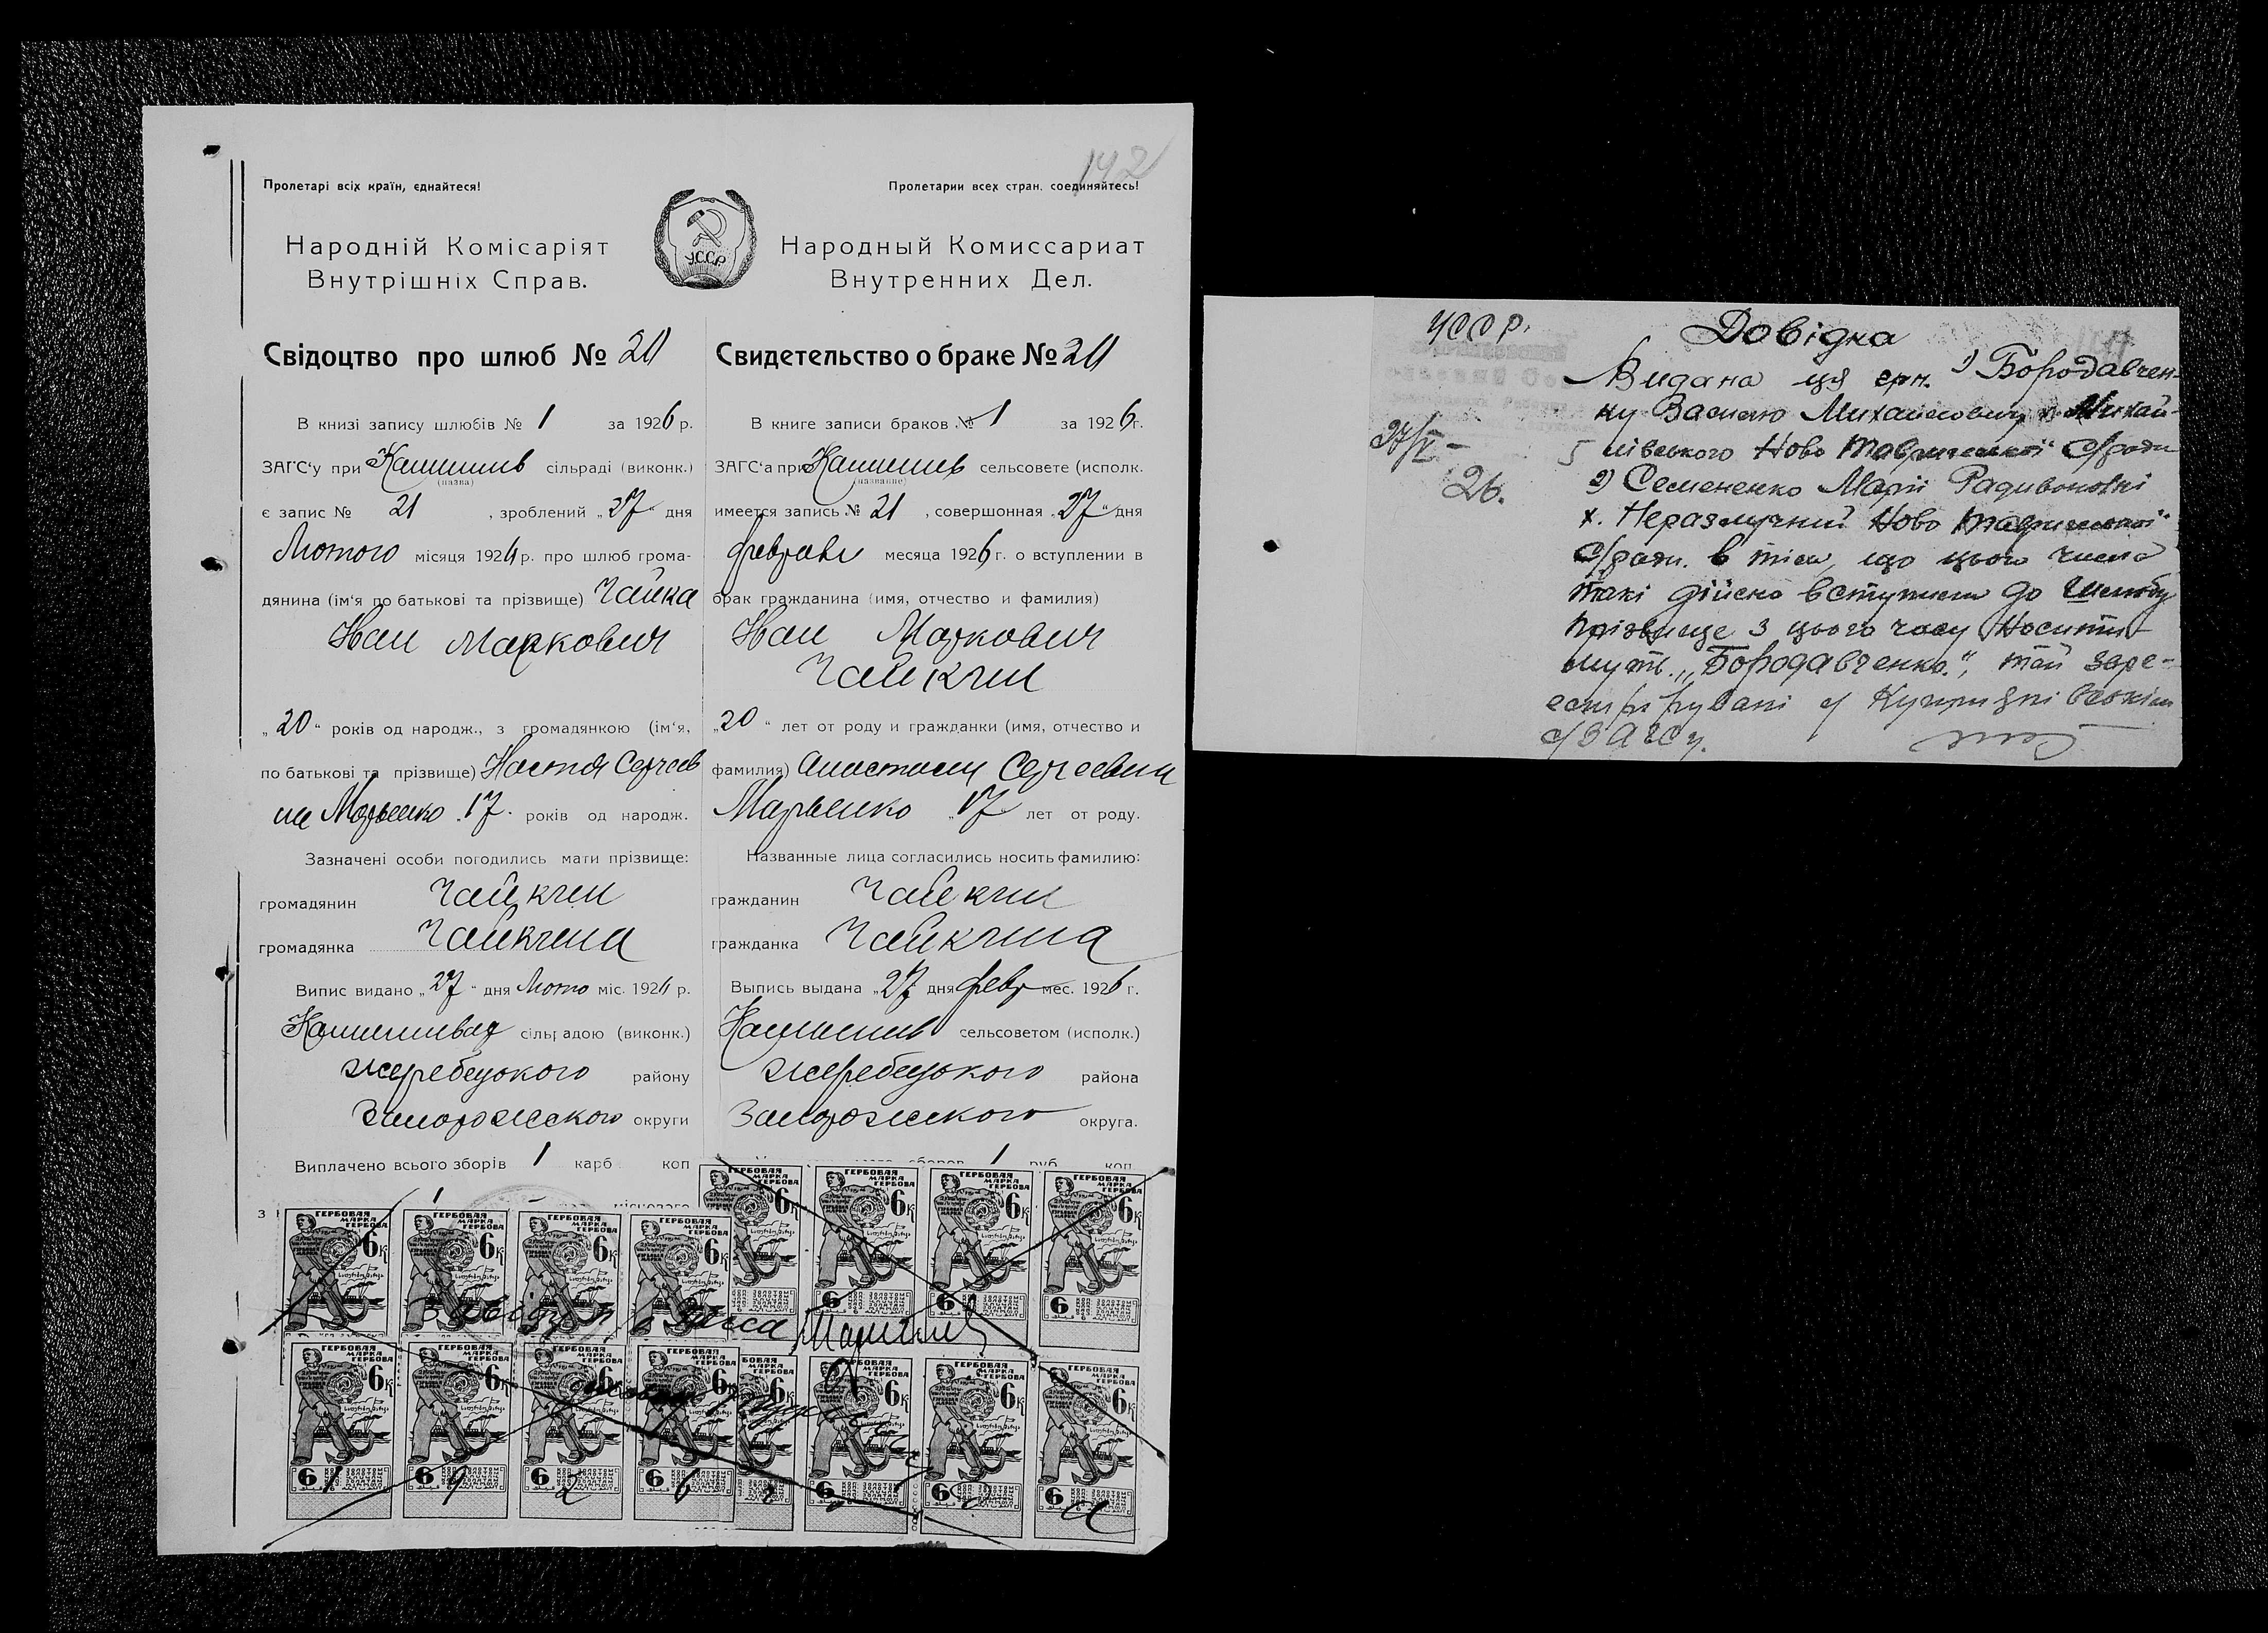 142
Пролетарі всіх країн, єднайтеся!
Народній Комісаріят
Внутрішніх Справ.
Свідоцтво про шлюб № 20
В книзі запису шлюбів № 1 за 1926 р.
ЗАГС'у при сільраді (виконк.)
(назва)
є запис № 21, зроблений „27" дня
Лютого місяця 1926 р. про шлюб грома-
дянина (ім'я по батькові та прізвище) Чайка
Иван Маркович
„20" років од народж., з громадянкою (ім'я,
по батькові та прізвище) Настя Сергеев
на Марьенко „17" років од народж.
Зазначені особи погодились мати прізвище:
громадянин Чайкин
громадянка Чайкина
Випис видано „27" дня Люто міс. 1926 р.
сільрадою (виконк.)
жеребецького району
Запорожського округи
Виплачено всього зборів 1 карб коп
з
У.С.С.Р.
Пролетарии всех стран, соединяйтесь!
Народный Комиссариат
Внутренних Дел.
Свидетельство о браке № 20
В книге записи браков № 1 за 1926 г.
ЗАГС'а при сельсовете (исполк.
(название)
имеется запись № 21, совершонная „27" дня
февраля месяца 1926 г. о вступлении в
брак гражданина (имя, отчество и фамилия)
Иван Маркович
Чайкин
„20" лет от роду и гражданки (имя, отчество и
фамилия) Анастасии Сергеевны
Марьенко „17" лет от роду.
Названные лица согласились носить фамилию:
гражданин Чайкин
гражданка Чайкина
Выпись выдана „27" дня февр мес. 1926 г.
сельсоветом (исполк.)
жеребецкого района
Запорожского округа.
сборов 1 руб. коп.
ГЕРБОВАЯ МАРКА ГЕРБОВА 6к
УССР.
27/V-
26.
Довідка
Видана ця грн. 1) Бородавчен-
ку Василю Михайловичу х. Михай-
лівського Ново Тавричеської с/ради
2) Семененко Марії Радивоновні
х. Неразлучний Ново Тавричеської
с/ради. в тім, що цього числа
такі дійсно вступили до Шлюбу
прізвище з цього часу носити
муть „Бородавченко", та й заре-
естрірувані у
с/ЗАГСу.